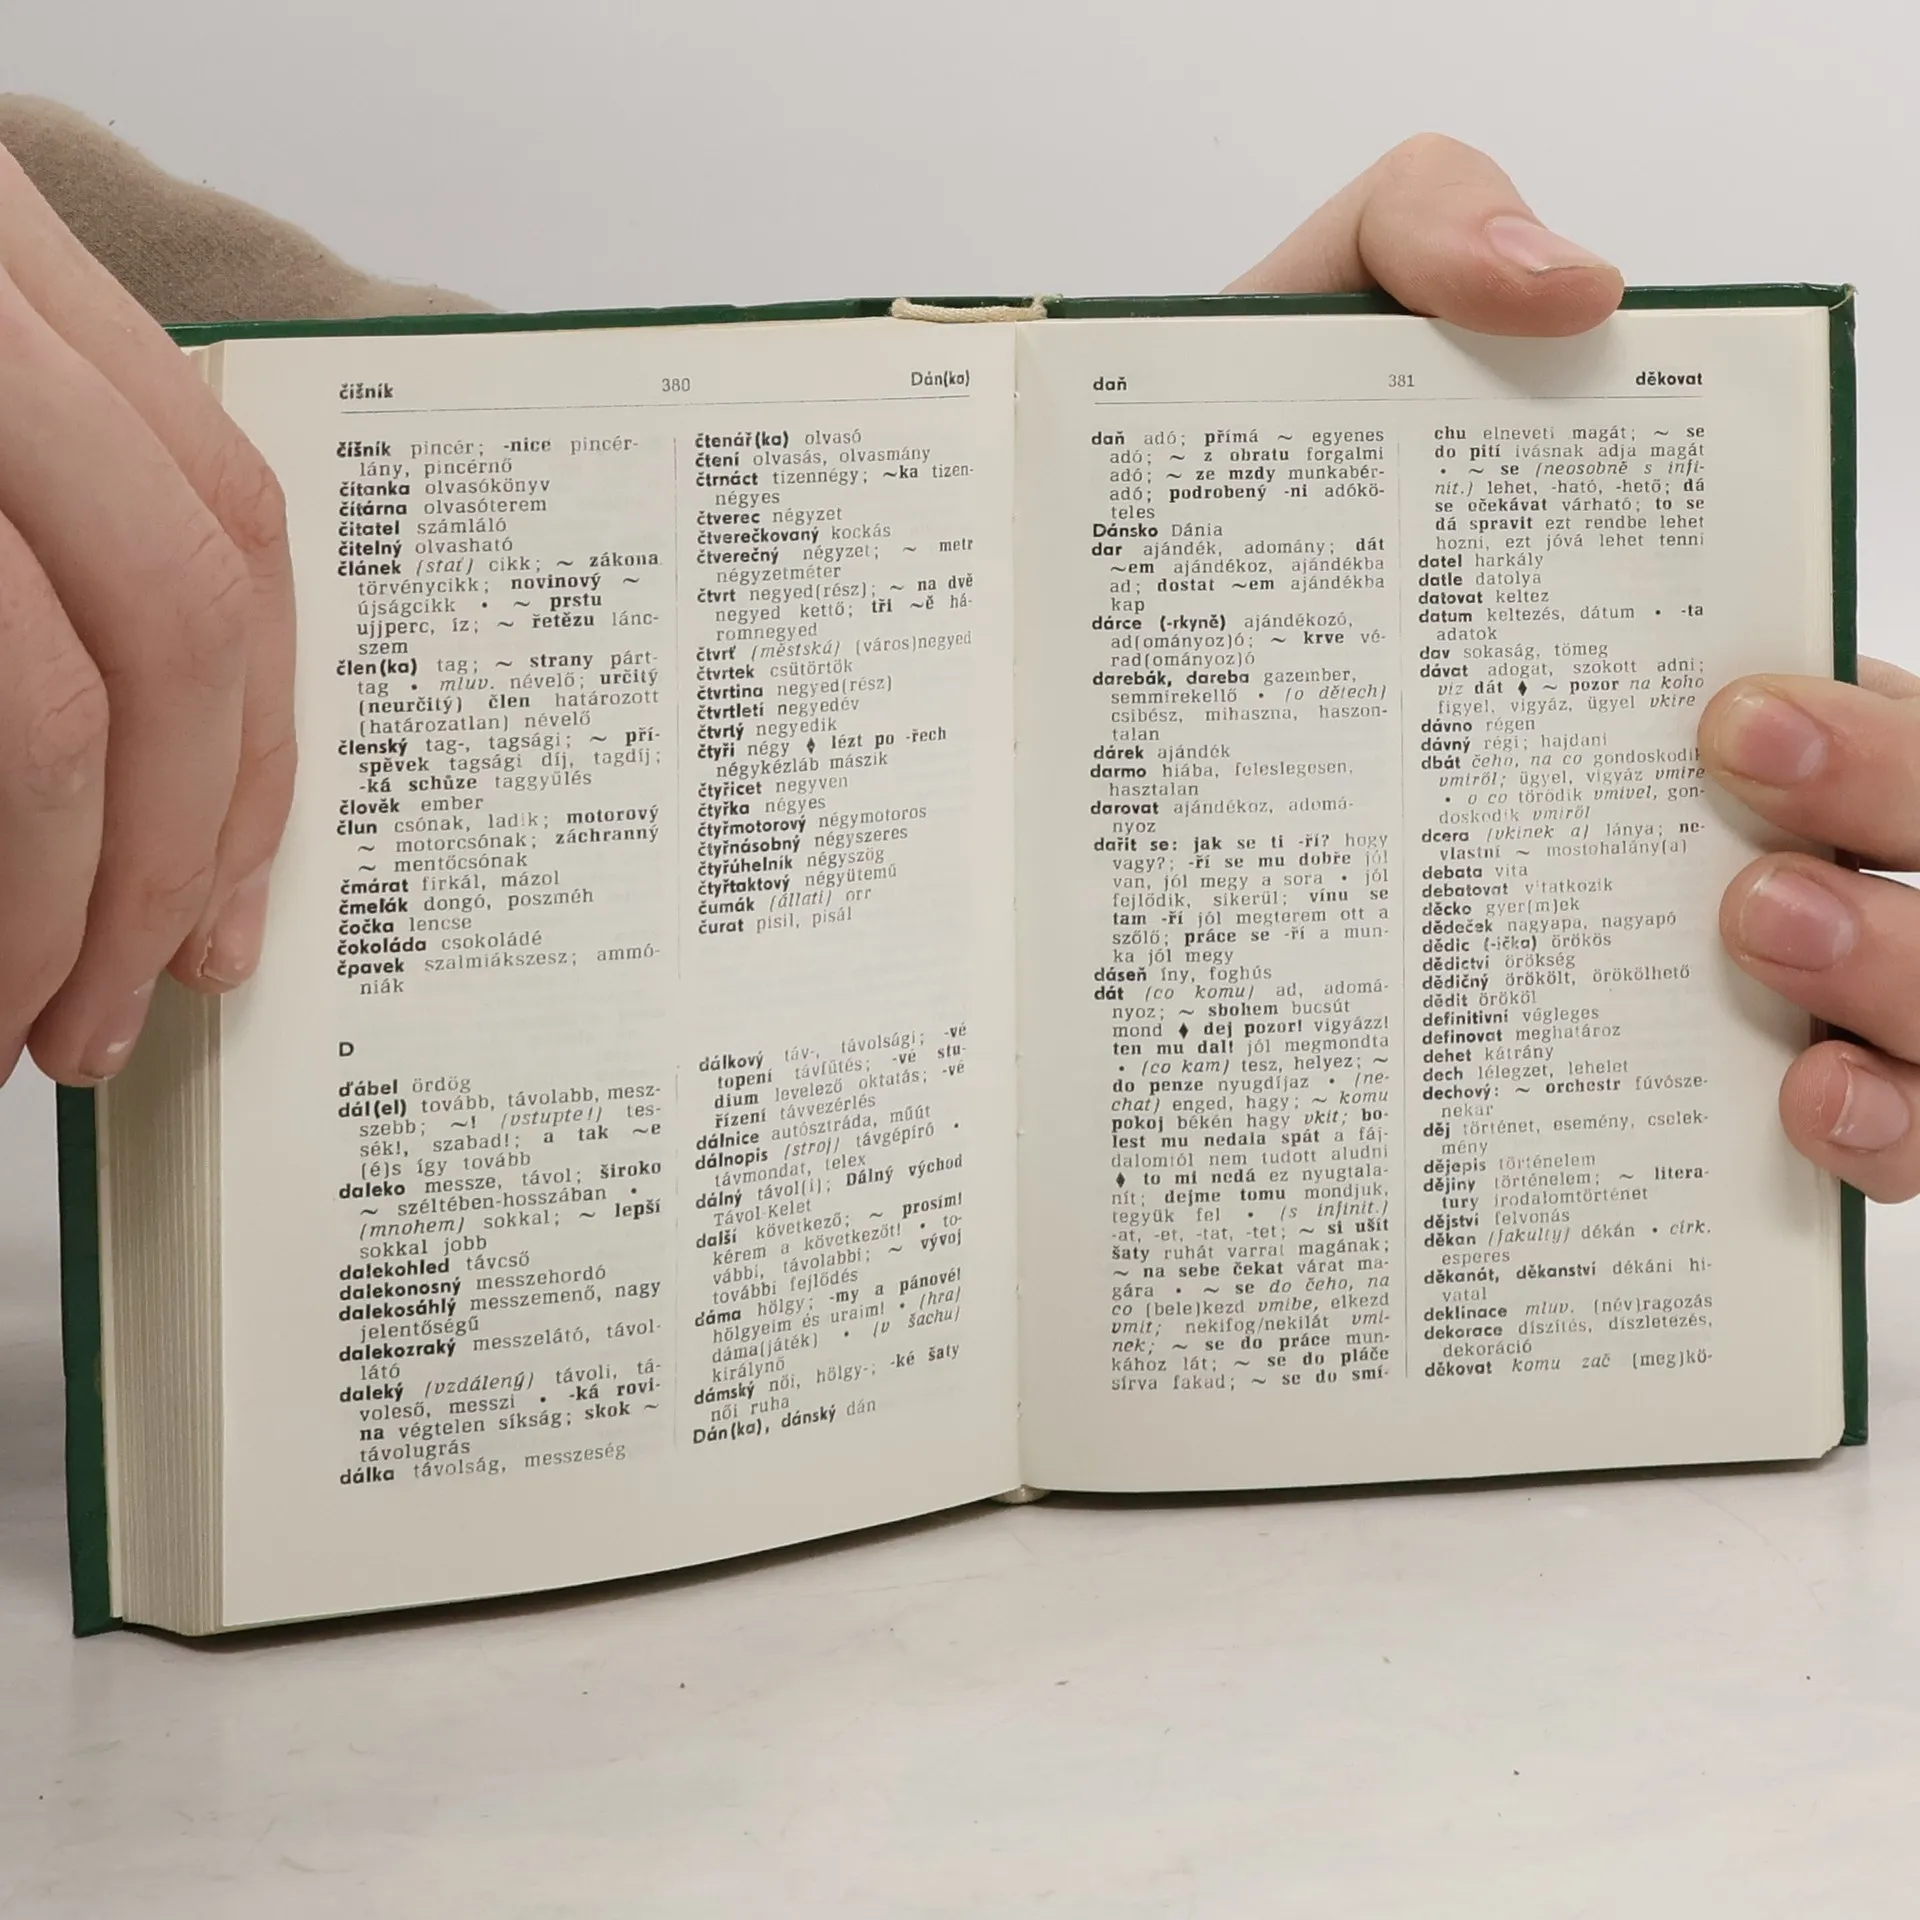 číšník 380 Dán(ka)
číšník pincér; -nice pincér-
lány, pincérnő
čítanka olvasókönyv
čítárna olvasóterem
čitatel számláló
čitelný olvasható
článek (stať) cikk; ~ zákona
törvénycikk; novinový ~
újságcikk • ~ prstu
ujjperc, íz; ~ řetězu lánc-
szem
člen(ka) tag; ~ strany párt-
tag • mluv. névelő; určitý
(neurčitý) člen határozott
(határozatlan) névelő
členský tag-, tagsági; ~ pří-
spěvek tagsági díj, tagdíj;
-ká schůze taggyűlés
člověk ember
člun csónak, ladik; motorový
~ motorcsónak; záchranný
~ mentőcsónak
čmárat firkál, mázol
čmelák dongó, poszméh
čočka lencse
čokoláda csokoládé
čpavek szalmiákszesz; ammó-
niák
čtenář(ka) olvasó
čtení olvasás, olvasmány
čtrnáct tizennégy; ~ka tizen-
négyes
čtverec négyzet
čtverečkovaný kockás
čtverečný négyzet; ~ metr
négyzetméter
čtvrt negyed(rész); ~ na dvě
negyed kettő; tři ~ě há-
romnegyed
čtvrť (městská) (város)negyed
čtvrtek csütörtök
čtvrtina negyed(rész)
čtvrtletí negyedév
čtvrtý negyedik
čtyři négy ♦ lézt po -řech
négykézláb mászik
čtyřicet negyven
čtyřka négyes
čtyřmotorový négymotoros
čtyřnásobný négyszeres
čtyřúhelník négyszög
čtyřtaktový négyütemű
čumák (állati) orr
čurat pisil, pisál
D
ďábel ördög
dál(el) tovább, távolabb, mesz-
szebb; ~! (vstupte!) tes-
sék!, szabad!; a tak ~e
(é)s így tovább
daleko messze, távol; široko
~ széltében-hosszában •
(mnohem) sokkal; ~ lepší
sokkal jobb
dalekohled távcső
dalekonosný messzehordó
dalekosáhlý messzemenő, nagy
jelentőségű
dalekozraký messzelátó, távol-
látó
daleký (vzdálený) távoli, tá-
voleső, messzi • -ká rovi-
na végtelen síkság; skok ~
távolugrás
dálka távolság, messzeség
dálkový táv-, távolsági; -vé
topení távfűtés; -vé stu-
dium levelező oktatás; -vé
řízení távvezérlés
dálnice autósztráda, műút
dálnopis (stroj) távgépíró •
távmondat, telex
dálný távol(i); Dálný východ
Távol-Kelet
další következő; ~ prosím!
kérem a következőt! • to-
vábbi, távolabbi; ~ vývoj
további fejlődés
dáma hölgy; -my a pánové!
hölgyeim és uraim! • (hra)
dáma(játék) • (v šachu)
királynő
dámský női, hölgy-; -ké šaty
női ruha
Dán(ka), dánský dán
daň 381 děkovat
daň adó; přímá ~ egyenes
adó; ~ z obratu forgalmi
adó; ~ ze mzdy munkabér-
adó; podrobený -ni adókö-
teles
Dánsko Dánia
dar ajándék, adomány; dát
~em ajándékoz, ajándékba
ad; dostat ~em ajándékba
kap
dárce (-rkyně) ajándékozó,
ad(ományoz)ó; ~ krve vé-
rad(ományoz)ó
darebák, dareba gazember,
semmirekellő • (o dětech)
csibész, mihaszna, haszon-
talan
dárek ajándék
darmo hiába, feleslegesen,
hasztalan
darovat ajándékoz, adomá-
nyoz
dařit se: jak se ti -ří? hogy
vagy?; -ří se mu dobře jól
van, jól megy a sora • jól
fejlődik, sikerül; vínu se
tam -ří jól megterem ott a
szőlő; práce se -ří a mun-
ka jól megy
dáseň íny, foghús
dát (co komu) ad, adomá-
nyoz; ~ sbohem bucsút
mond ♦ dej pozor! vigyázz!
ten mu dal! jól megmondta
• (co kam) tesz, helyez; ~
do penze nyugdíjaz • (ne-
chat) enged, hagy; ~ komu
pokoj békén hagy vkit; bo-
lest mu nedala spát a fáj-
dalomtól nem tudott aludni
♦ to mi nedá ez nyugtala-
nít; dejme tomu mondjuk,
tegyük fel • (s infinit.)
-at, -et, -tat, -tet; ~ si ušít
šaty ruhát varrat magának;
~ na sebe čekat várat ma-
gára • ~ se do čeho, na
co (bele)kezd vmibe, elkezd
vmit; nekifog/nekilát vmi-
nek; ~ se do práce mun-
kához lát; ~ se do pláče
sírva fakad; ~ se do smí-
chu elneveti magát; ~ se
do pití ivásnak adja magát
• ~ se (neosobně s infi-
nit.) lehet, -ható, -hető; dá
se očekávat várható; to se
dá spravit ezt rendbe lehet
hozni, ezt jóvá lehet tenni
datel harkály
datle datolya
datovat keltez
datum keltezés, dátum • -ta
adatok
dav sokaság, tömeg
dávat adogat, szokott adni;
viz dát ♦ ~ pozor na koho
figyel, vigyáz, ügyel vkire
dávno régen
dávný régi; hajdani
dbát čeho, na co gondoskodik
vmiről; ügyel, vigyáz vmire
• o co törődik vmivel, gon-
doskodik vmiről
dcera (vkinek a) lánya; ne-
vlastní ~ mostohalány(a)
debata vita
debatovat vitatkozik
děcko gyer(m)ek
dědeček nagyapa, nagyapó
dědic (-ička) örökös
dědictví örökség
dědičný örökölt, örökölhető
dědit örököl
definitivní végleges
definovat meghatároz
dehet kátrány
dech lélegzet, lehelet
dechový: ~ orchestr fúvósze-
nekar
děj történet, esemény, cselek-
mény
dějepis történelem
dějiny történelem; ~ litera-
tury irodalomtörténet
dějství felvonás
děkan (fakulty) dékán • círk.
esperes
děkanát, děkanství dékáni hi-
vatal
deklinace mluv. (név)ragozás
dekorace díszítés, díszletezés,
dekoráció
děkovat komu zač (meg)kö-